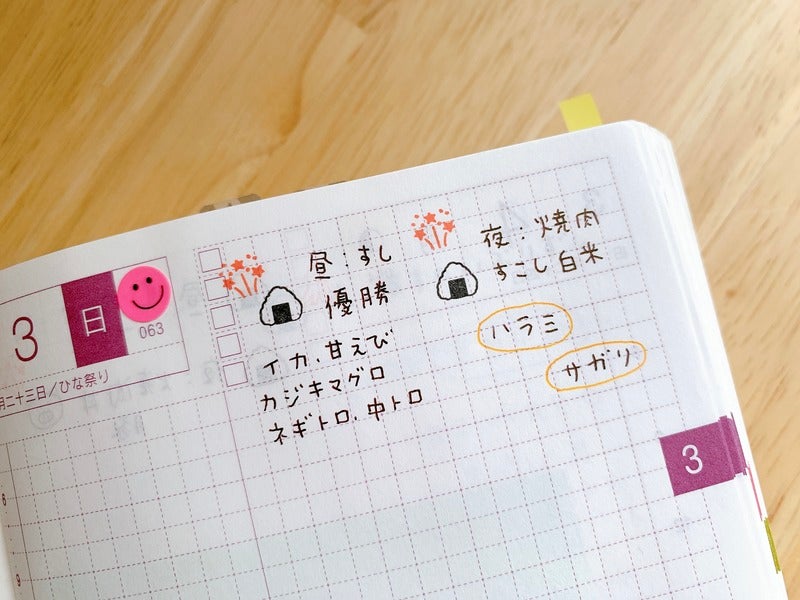 3
日
063
月二十三日/ひな祭り
昼:すし
優勝
イカ、甘えび
カジキマグロ
ネギトロ、中トロ
夜:焼肉
すこし白米
ハラミ
サガリ
6
9
3